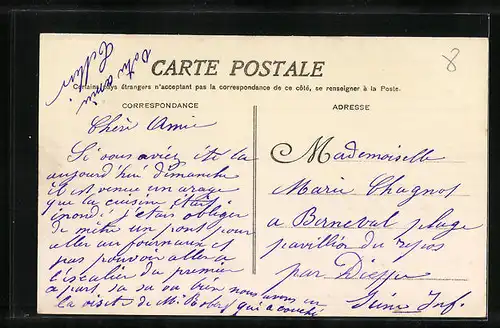 votre amie
8
CARTE POSTALE
Certains pays étrangers n'acceptant pas la correspondance de ce côté, se renseigner à la Poste.
CORRESPONDANCE
ADRESSE
Cheri Amie
Si vous aviez été la
aujourd'hui démanche
il est venue un arage
que la cuisine était
inondé j'etais obliger
de mètre un pont pour
aller au fourneaux et
pas pouvoir aller a
l'escalier du premier
a part sa sa va bien nous avons eu
la visits de Mr Robert qui a couché
Mademoiselle
Marie Chagnot
a Berneval plage
pavillion du repos
par Dieppe
Seine Inf.